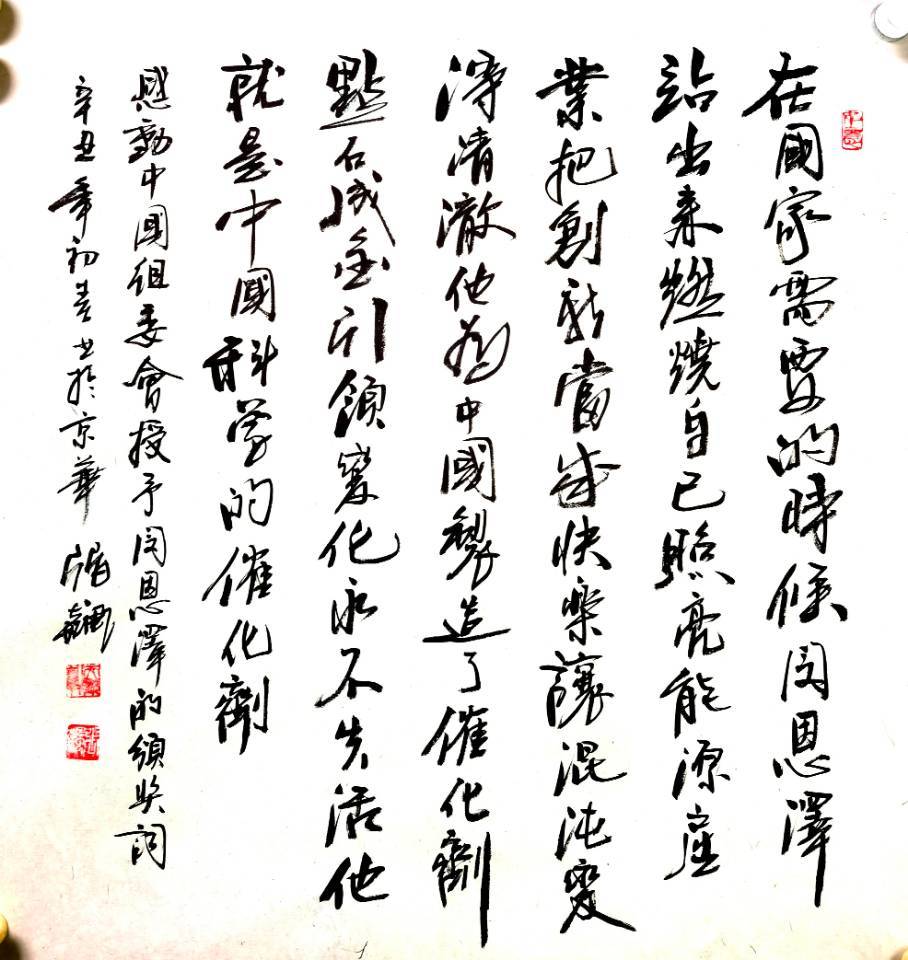 在國家需要的時候闵恩澤
站出来燃燒自己照亮能源産
業把創新當成快樂讓混沌變
得清澈他為中國製造了催化劑
點石成金引領變化永不失活他
就是中國科学的催化劑
感動中國组委會授予闵恩澤的颁奖詞
辛丑年初春书於京華